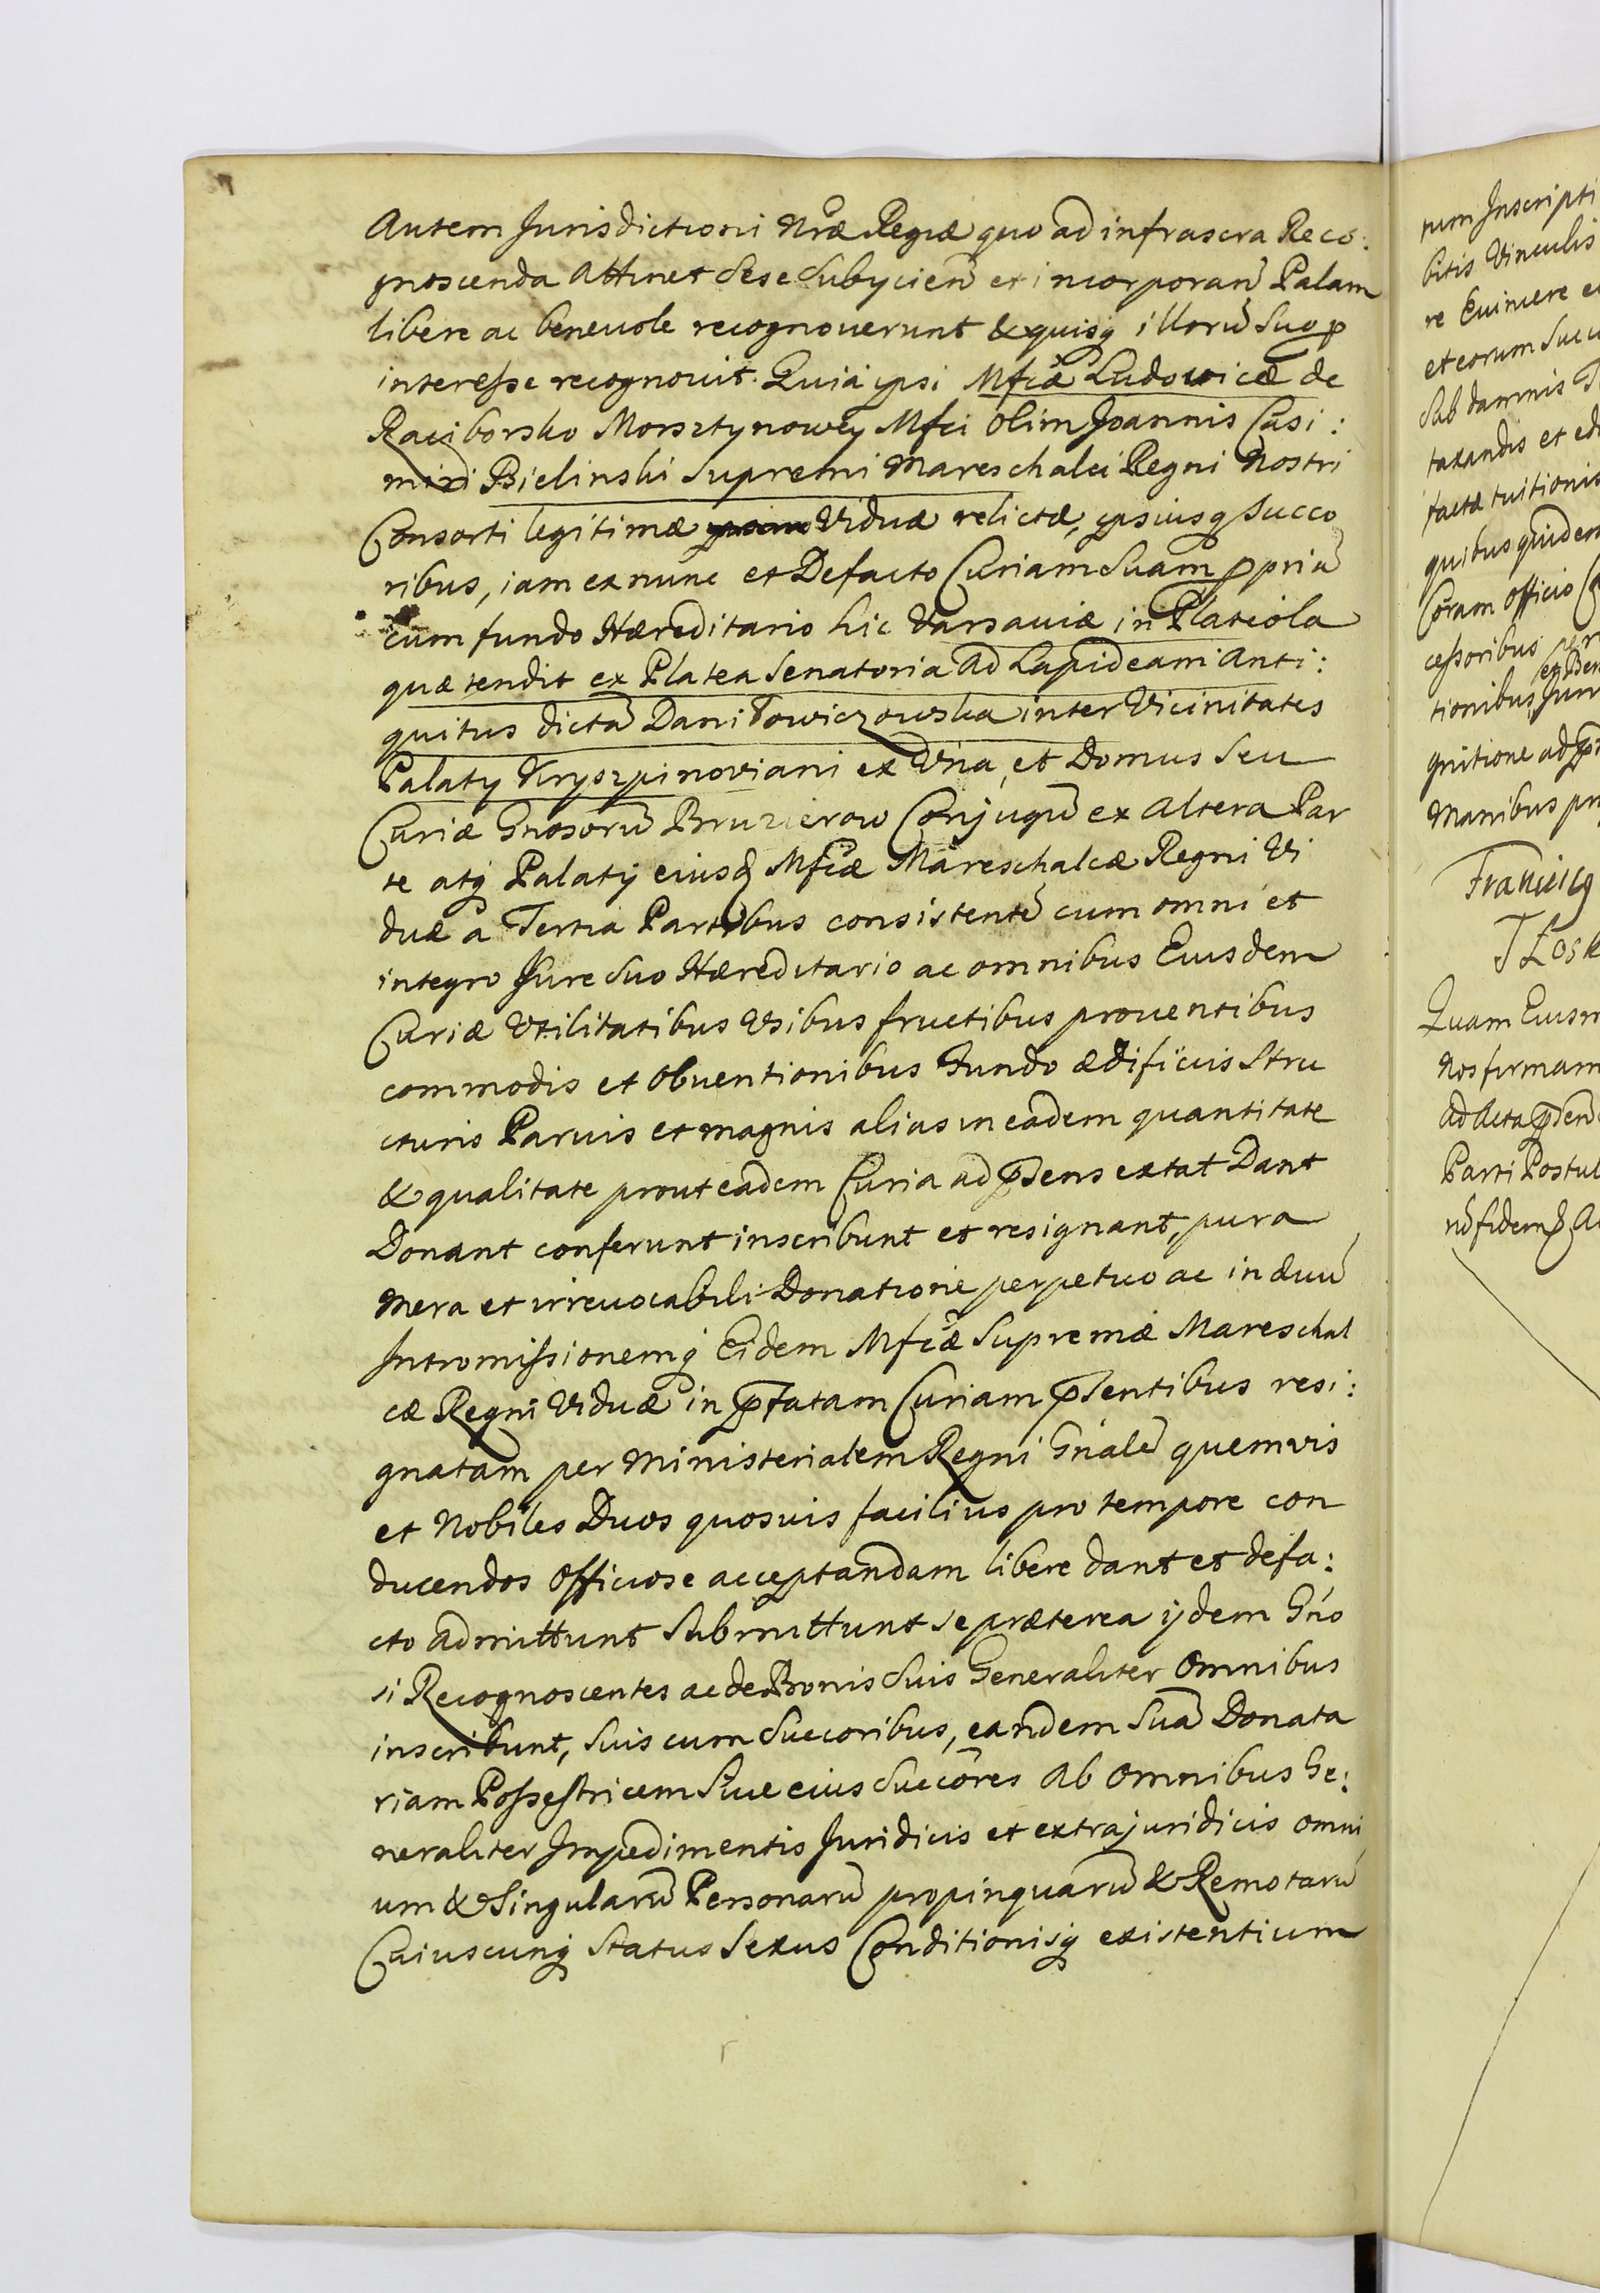 Autem Jurisdictioni Nræ Regiæ quo ad infrascra Reco:
gnoscenda Attinet Sese Subycien̄ et incorporan̄ Palam
libere ac beneuole recognouerunt & quisq illorū Suo p
interesse recognouit. Quia ipsi Mfcæ Ludowicæ de
Raciborsko Morsztynowey Mfci olim Joannis Casi:
miri Bielinski Supremi Mareschalci Regni Nostri
Consorti legitimæ Viduæ relictæ, ipsiusq Succo
ribus, iam ex nunc et Defacto Curiam Suam ppriā
cum fundo Hæreditario hic Varsauiæ in Plateola
quæ tendit ex Platea Senatoria Ad Lapideam Anti:
quitus dictā Daniłowiczowska inter Vicinitates
Palaty Kryszpinoviani ex Una, et Domus Seu
Curiæ Gnosorū Bruzierow Conjugū ex Altera Par
te atq Palatij eiusd Mfcæ Mareschalcæ Regni Vi
duæ a Tertia Partibus consistentē cum omni et
integro Jure Suo Hæreditario ac omnibus Eiusdem
Curiæ Vtilitatibus Vsibus fructibus prouentibus
commodis et Obuentionibus Fundo ædificiis Stru
cturis Paruis et magnis alias in eadem quantitate
& qualitate prout eadem Curia ad p̄sens extat Dant
Donant conferunt inscribunt et resignant, pura
Mera et irreuocabili Donatione perpetuo ac in æuū
Intromissionemq Eidem Mfcæ Supremæ Mareschal
cæ Regni Viduæ in p̄fatam Curiam p̄sentibus resi:
gnatam per Ministerialem Regni Gnalē quemvis
et Nobiles Duos quosuis facilius pro tempore con
ducendos Officiose acceptandam libere dant et defa:
cto Admittunt Submittunt se præterea ijdem Gno
si Recognoscentes ac de Bonis Suis Generaliter Omnibus
inscribunt, Suis cum Succoribus, eandem Suā Donata
riam Possestricem Siue eius Succores Ab Omnibus Ge:
neraliter Impedimentis Juridicis et extrajuridicis omni
um & Singularū Personarū propinquarū & Remotarū
Cuiuscunq Status Sexus Conditionisq existentium
rum Inscripti
bitis Vinculis
re Euincere e
et eorum Succ
Sub damnis
taxandis et ed
factæ tuitionis
quibus quidem
Coram Officio
cessoribus per
tionibus
gnitione ad
Manibus pr
Francisq
Quam Eiusm
Nos firmam
Ad Acta p̄sen
Parti Postul